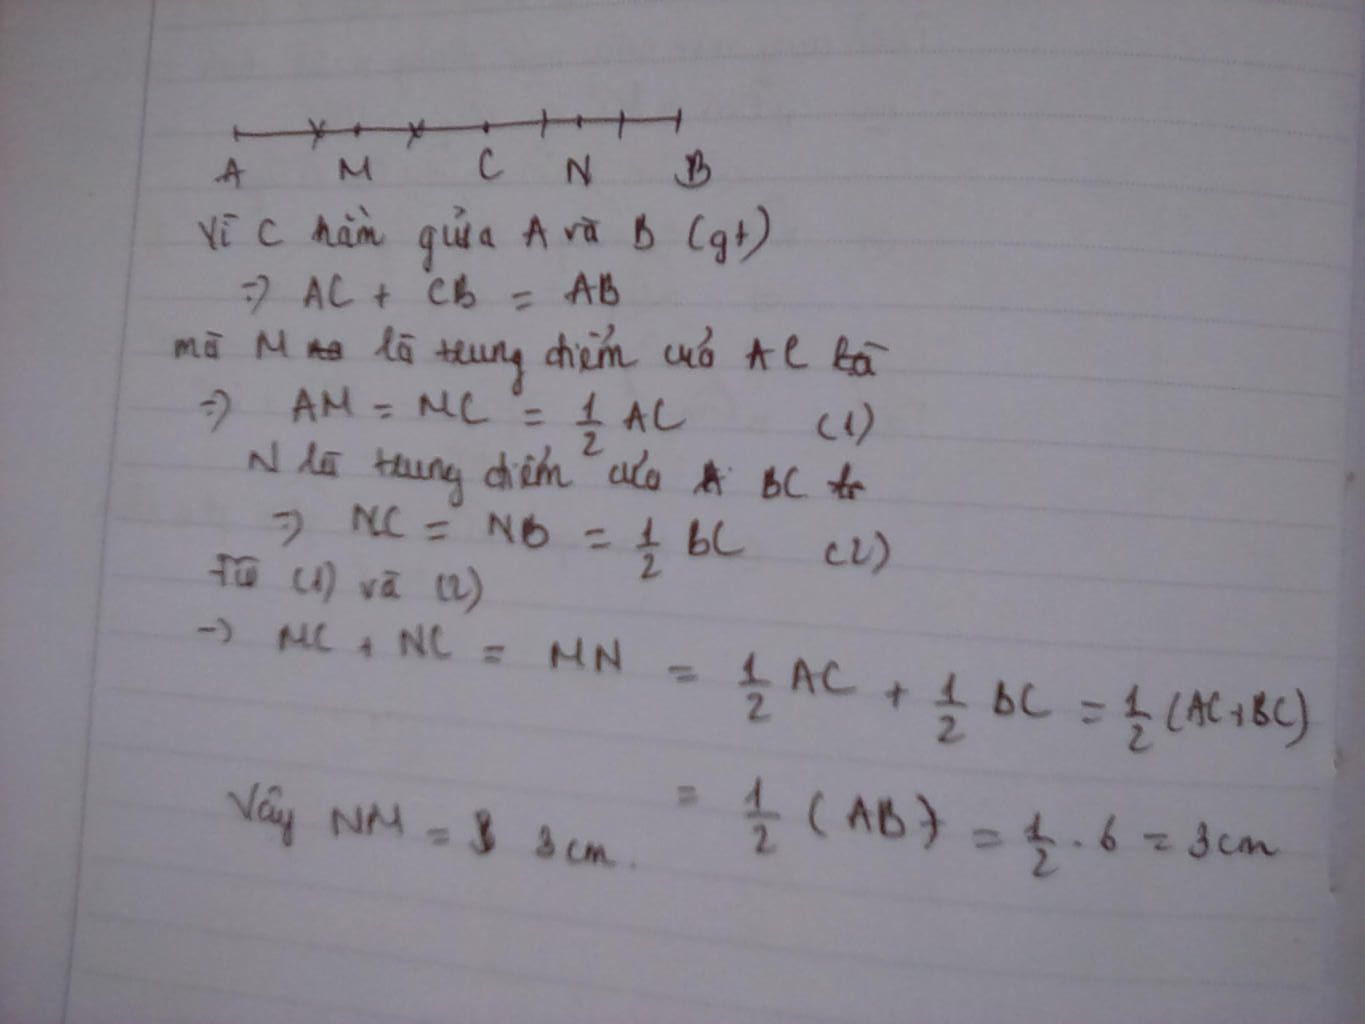 A M C N B
Vì C nằm giữa A và B (gt)
=> AC + CB = AB
mà M là trung điểm của AC
=> AM = MC = 1/2 AC (1)
N là trung điểm của BC
=> NC = NB = 1/2 BC (2)
Từ (1) và (2)
-> MC + NC = MN = 1/2 AC + 1/2 BC = 1/2 (AC+BC)
= 1/2 (AB) = 1/2 . 6 = 3cm
Vậy NM = 3cm.